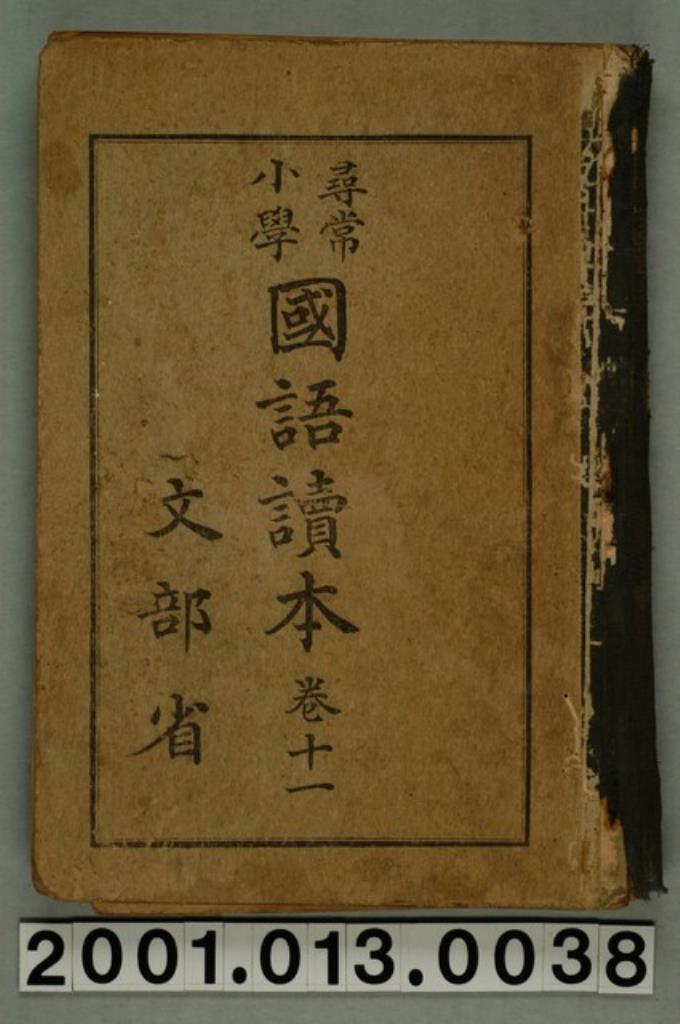 尋常
小學
國語讀本 卷十一
文部省
2001.013.0038